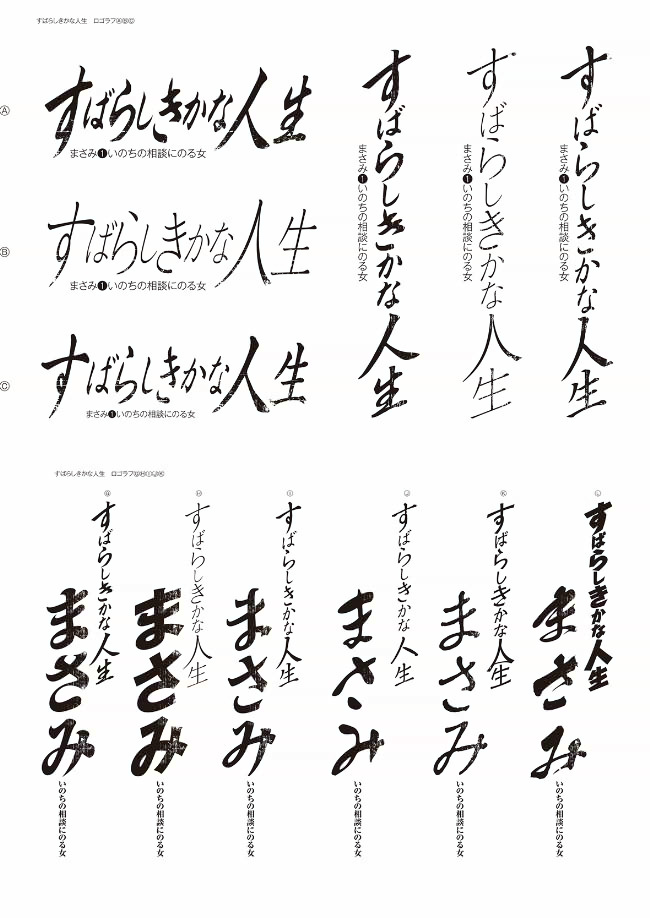 すばらしきかな人生　ロゴラフⒶⒷⒸ
Ⓐ
すばらしきかな人生
まさみ❶いのちの相談にのる女
Ⓑ
すばらしきかな人生
まさみ❶いのちの相談にのる女
Ⓒ
すばらしきかな人生
まさみ❶いのちの相談にのる女
すばらしきかな人生
まさみ❶いのちの相談にのる女
すばらしきかな人生
まさみ❶いのちの相談にのる女
すばらしきかな人生
まさみ❶いのちの相談にのる女
すばらしきかな人生　ロゴラフⒼⒽⒾⒿⓀ
Ⓖ
すばらしきかな人生
まさみ
いのちの相談にのる女
Ⓗ
すばらしきかな人生
まさみ
いのちの相談にのる女
Ⓘ
すばらしきかな人生
まさみ
いのちの相談にのる女
Ⓙ
すばらしきかな人生
まさみ
いのちの相談にのる女
Ⓚ
すばらしきかな人生
まさみ
いのちの相談にのる女
Ⓛ
すばらしきかな人生
まさみ
いのちの相談にのる女